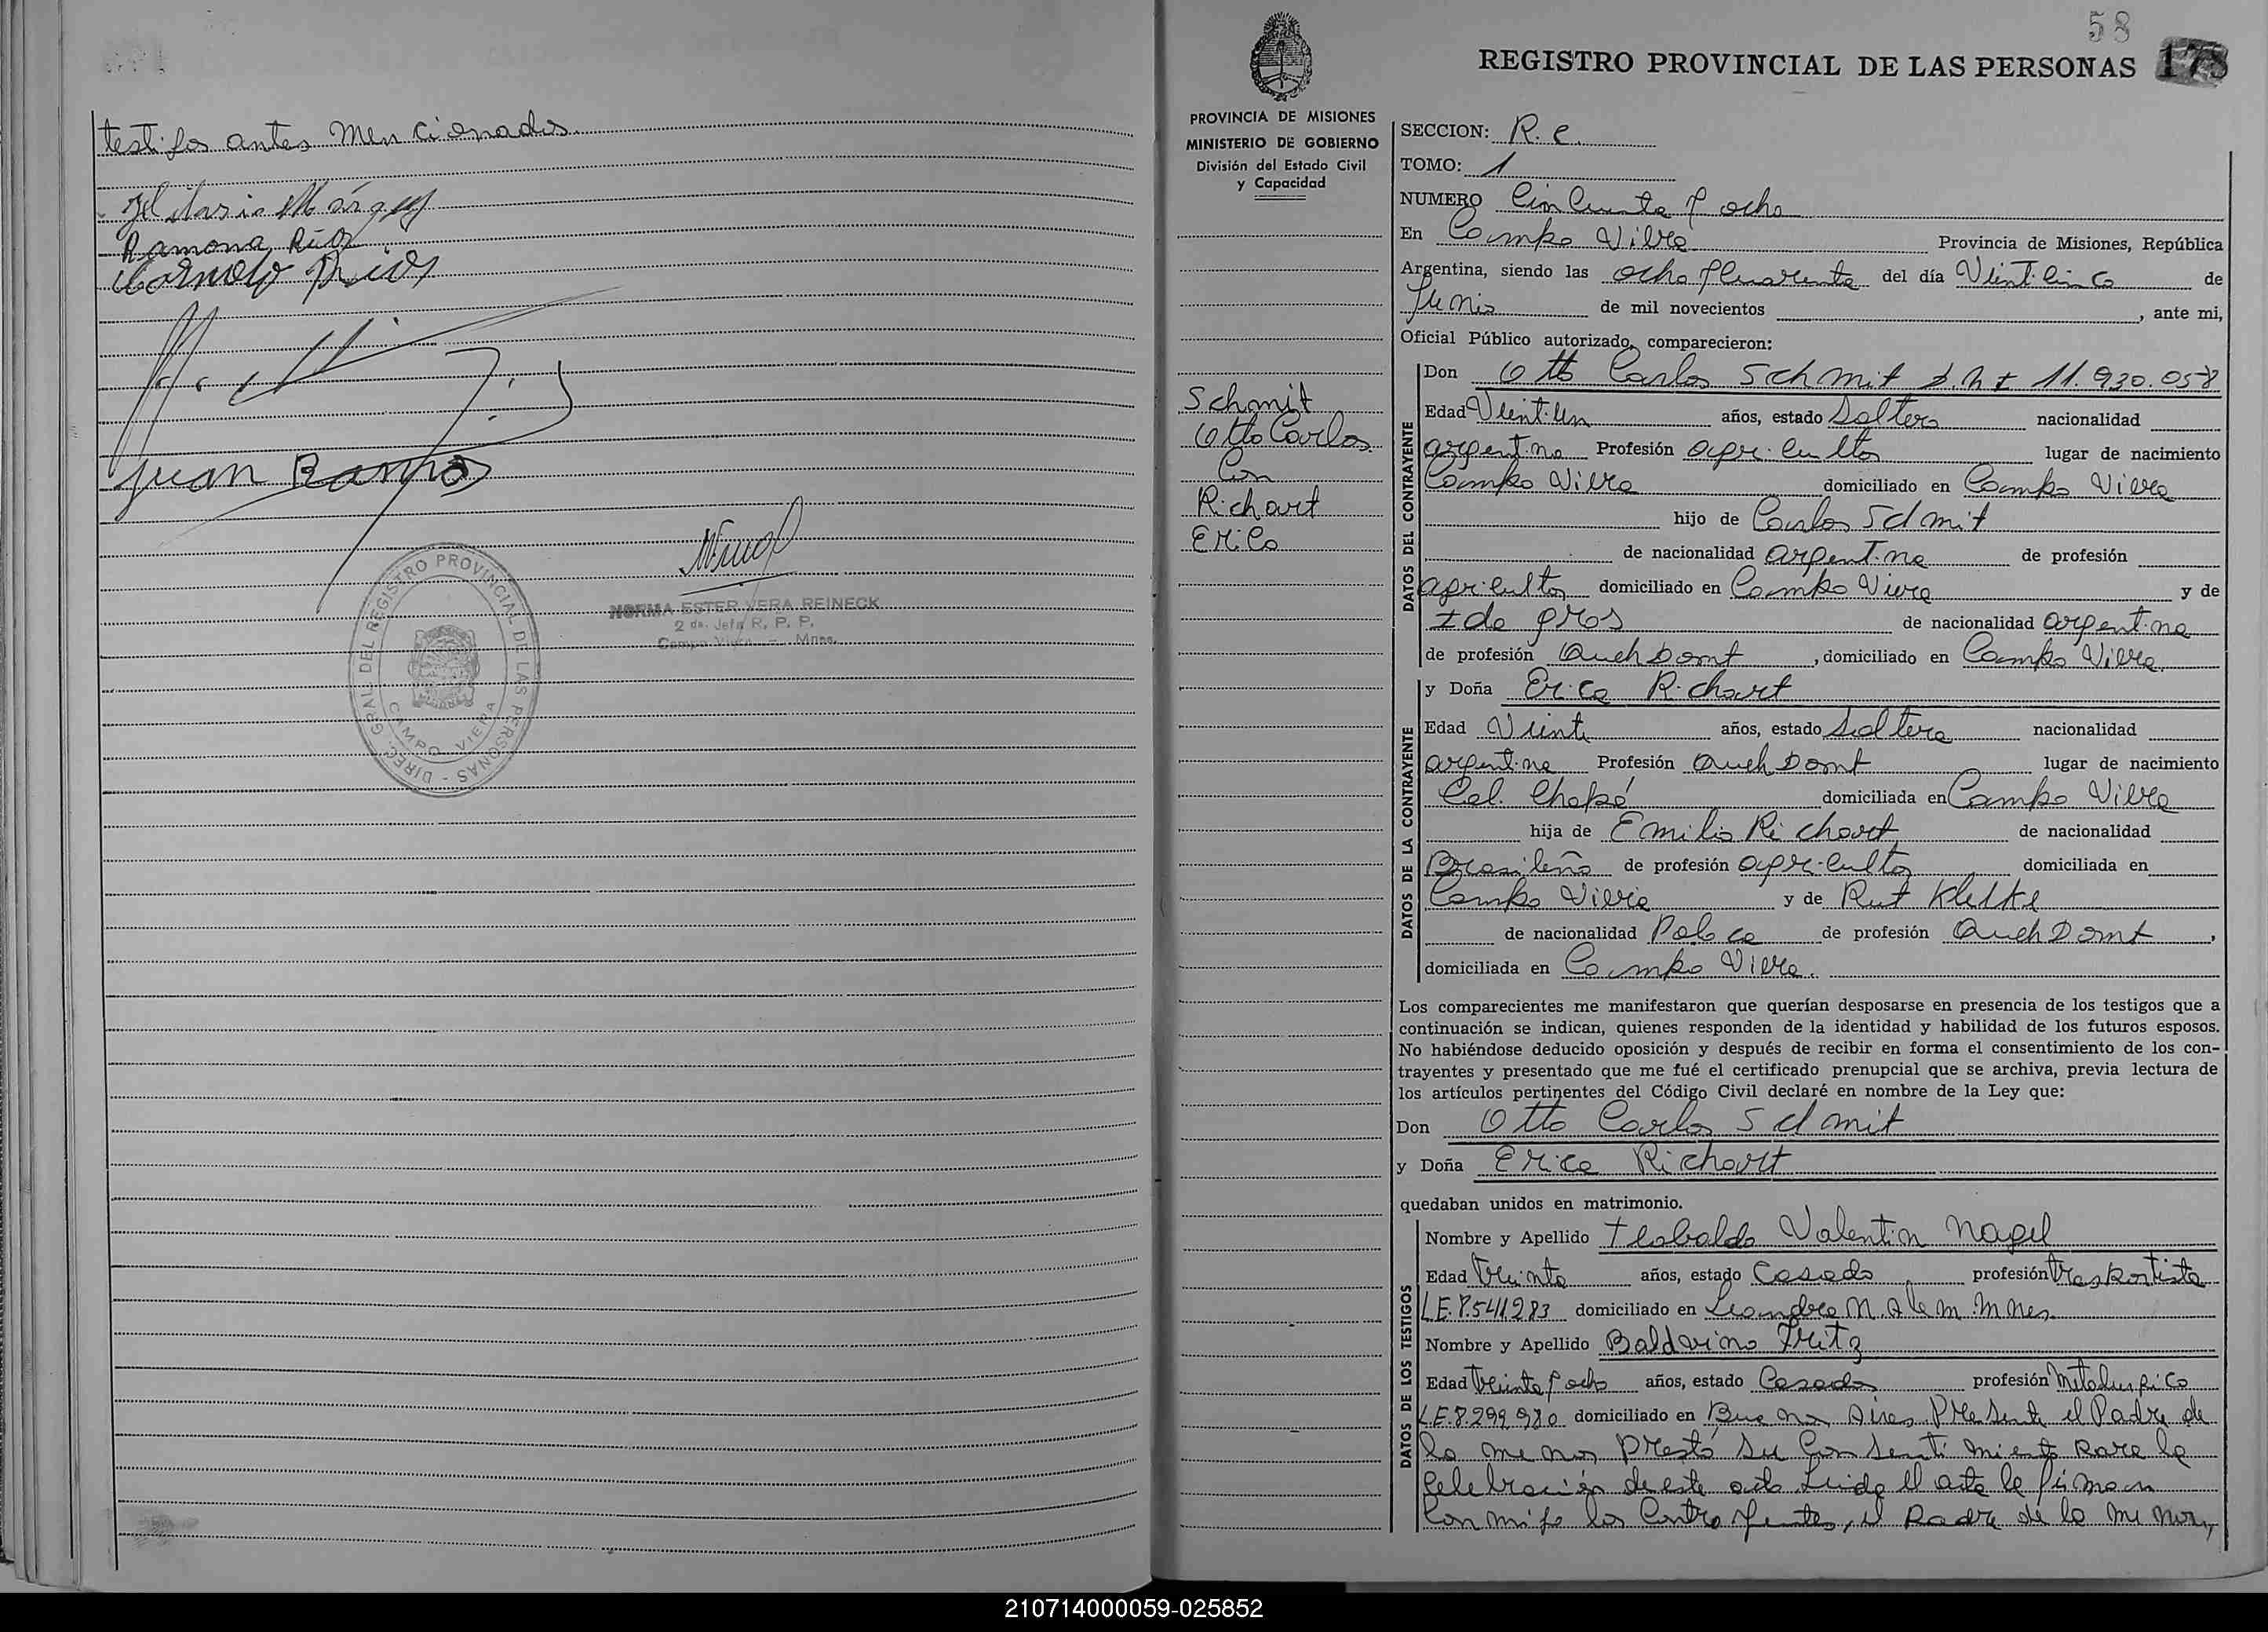 testigos antes mencionados
Ramona
Juan Ramos
DIREC. GRAL. DEL REGISTRO PROVINCIAL DE LAS PERSONAS -
CAMPO VIERA
NORMA ESTER VERA REINECK
2 da. Jefa R. P. P.
Campo Viera - Mnes.
58
REGISTRO PROVINCIAL DE LAS PERSONAS 178
PROVINCIA DE MISIONES
MINISTERIO DE GOBIERNO
División del Estado Civil
y Capacidad
Schmit
Otto Carlos
Con
Richart
Erica
SECCION: R. C.
TOMO: 1
NUMERO Cincuenta y ocho
En Campo Viera Provincia de Misiones, República
Argentina, siendo las ocho y cuarenta del día Veinticinco de
Junio de mil novecientos , ante mi,
Oficial Público autorizado, comparecieron:
DATOS DEL CONTRAYENTE
Don Otto Carlos Schmit D.N.I 11.930.058
Edad Veintiun años, estado Soltero nacionalidad
argentina Profesión agricultor lugar de nacimiento
Campo Viera domiciliado en Campo Viera
hijo de Carlos Schmit
de nacionalidad argentina de profesión
agricultor domiciliado en Campo Viera y de
Ida de nacionalidad argentina
de profesión Queh Domt , domiciliado en Campo Viera.
DATOS DE LA CONTRAYENTE
y Doña Erica Richart
Edad Veinte años, estado Soltera nacionalidad
argentina Profesión Queh Domt lugar de nacimiento
Col. Chapá domiciliada en Campo Viera
hija de Emilio Richart de nacionalidad
Brasileño de profesión agricultor domiciliada en
Campo Viera y de Rut Kletke
de nacionalidad Polaca de profesión Queh Domt ,
domiciliada en Campo Viera.
Los comparecientes me manifestaron que querían desposarse en presencia de los testigos que a
continuación se indican, quienes responden de la identidad y habilidad de los futuros esposos.
No habiéndose deducido oposición y después de recibir en forma el consentimiento de los con-
trayentes y presentado que me fué el certificado prenupcial que se archiva, previa lectura de
los artículos pertinentes del Código Civil declaré en nombre de la Ley que:
Don Otto Carlos Schmit
y Doña Erica Richart
quedaban unidos en matrimonio.
DATOS DE LOS TESTIGOS
Nombre y Apellido Teobaldo Valentin Nagel
Edad treinta años, estado Casado profesión trasportista
L.E. 8.541.283 domiciliado en Leandro N. Alem Mnes.
Nombre y Apellido Baldvino Fritz
Edad treinta y ocho años, estado Casado profesión Metalurgico
L.E. 8.299.980 domiciliado en Buenos Aires. Presente el Padre de
la menor prestó su Consentimiento para la
Celebración de este acto. Leida el acta la firman
Con migo los Contrayentes, el Padre de la menor,
210714000059-025852